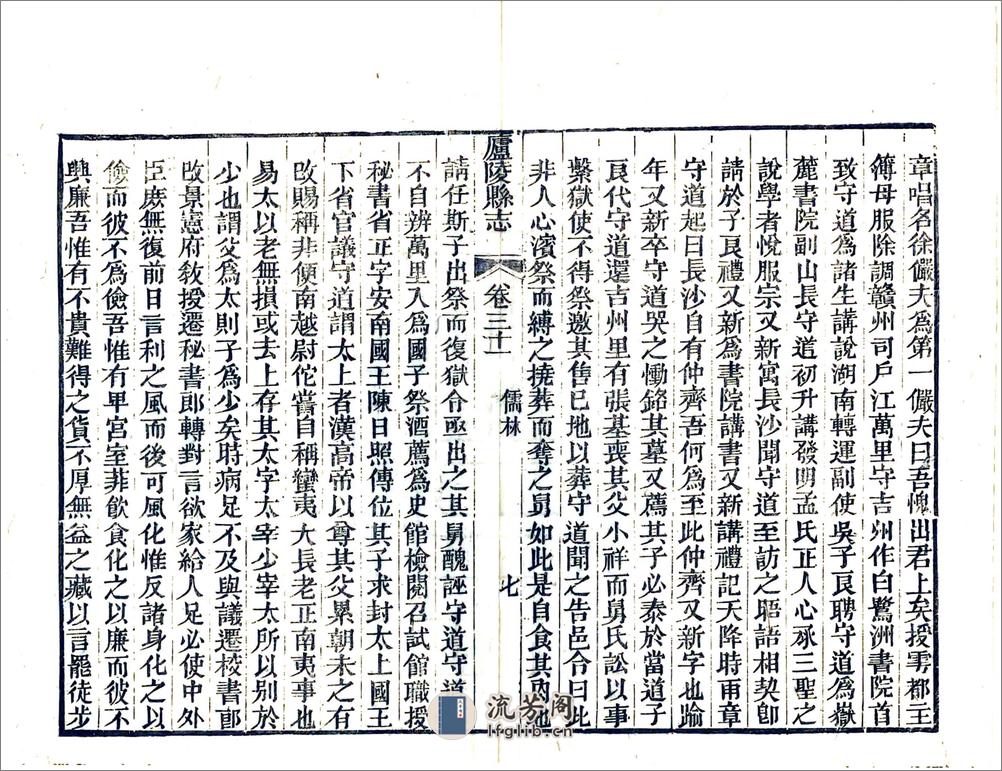 章唱名徐儼夫爲第一儼夫曰吾愧出君上矣授雩都主
簿母服除調贛州司戶江萬里守吉州作白鷺洲書院首
致守道爲諸生講說湖南轉運副使吳子良聘守道爲嶽
麓書院副山長守道初升講發明孟氏正人心承三聖之
說學者悅服宗又新寓長沙聞守道至訪之晤語相契卽
請於子良禮又新爲書院講書又新講禮記天降時雨章
守道起曰長沙自有仲齊吾何爲至此仲齊又新字也踰
年又新卒守道哭之慟銘其墓又薦其子必泰於當道子
良代守道還吉州里有張基喪其父小祥而舅氏訟以事
繫獄使不得祭邀其售己地以葬守道聞之告邑令曰此
非人心濱祭而縛之撓葬而奪之舅如此是自食其肉也
廬陵縣志
卷三十一
儒林
七
請任斯子出祭而復獄令亟出之其舅醜誣守道守道
不自辨萬里入爲國子祭酒薦爲史館檢閱召試館職授
秘書省正字安南國王陳日照傳位其子求封太上國王
下省官議守道謂太上者漢高帝以尊其父累朝未之有
改賜稱非便南越尉佗嘗自稱蠻夷大長老正南夷事也
易太以老無損或去上存其太字太宰少宰太所以別於
少也謂父爲太則子爲少矣時病足不及與議遷校書郎
改景憲府敎授遷秘書郎轉對言欲家給人足必使中外
臣庶無復前日言利之風而後可風化惟反諸身化之以
儉而彼不爲儉吾惟有卑宮室菲飮食化之以廉而彼不
興廉吾惟有不貴難得之貨不厚無益之藏以言罷徒步
流芳阁
lfglib.cn